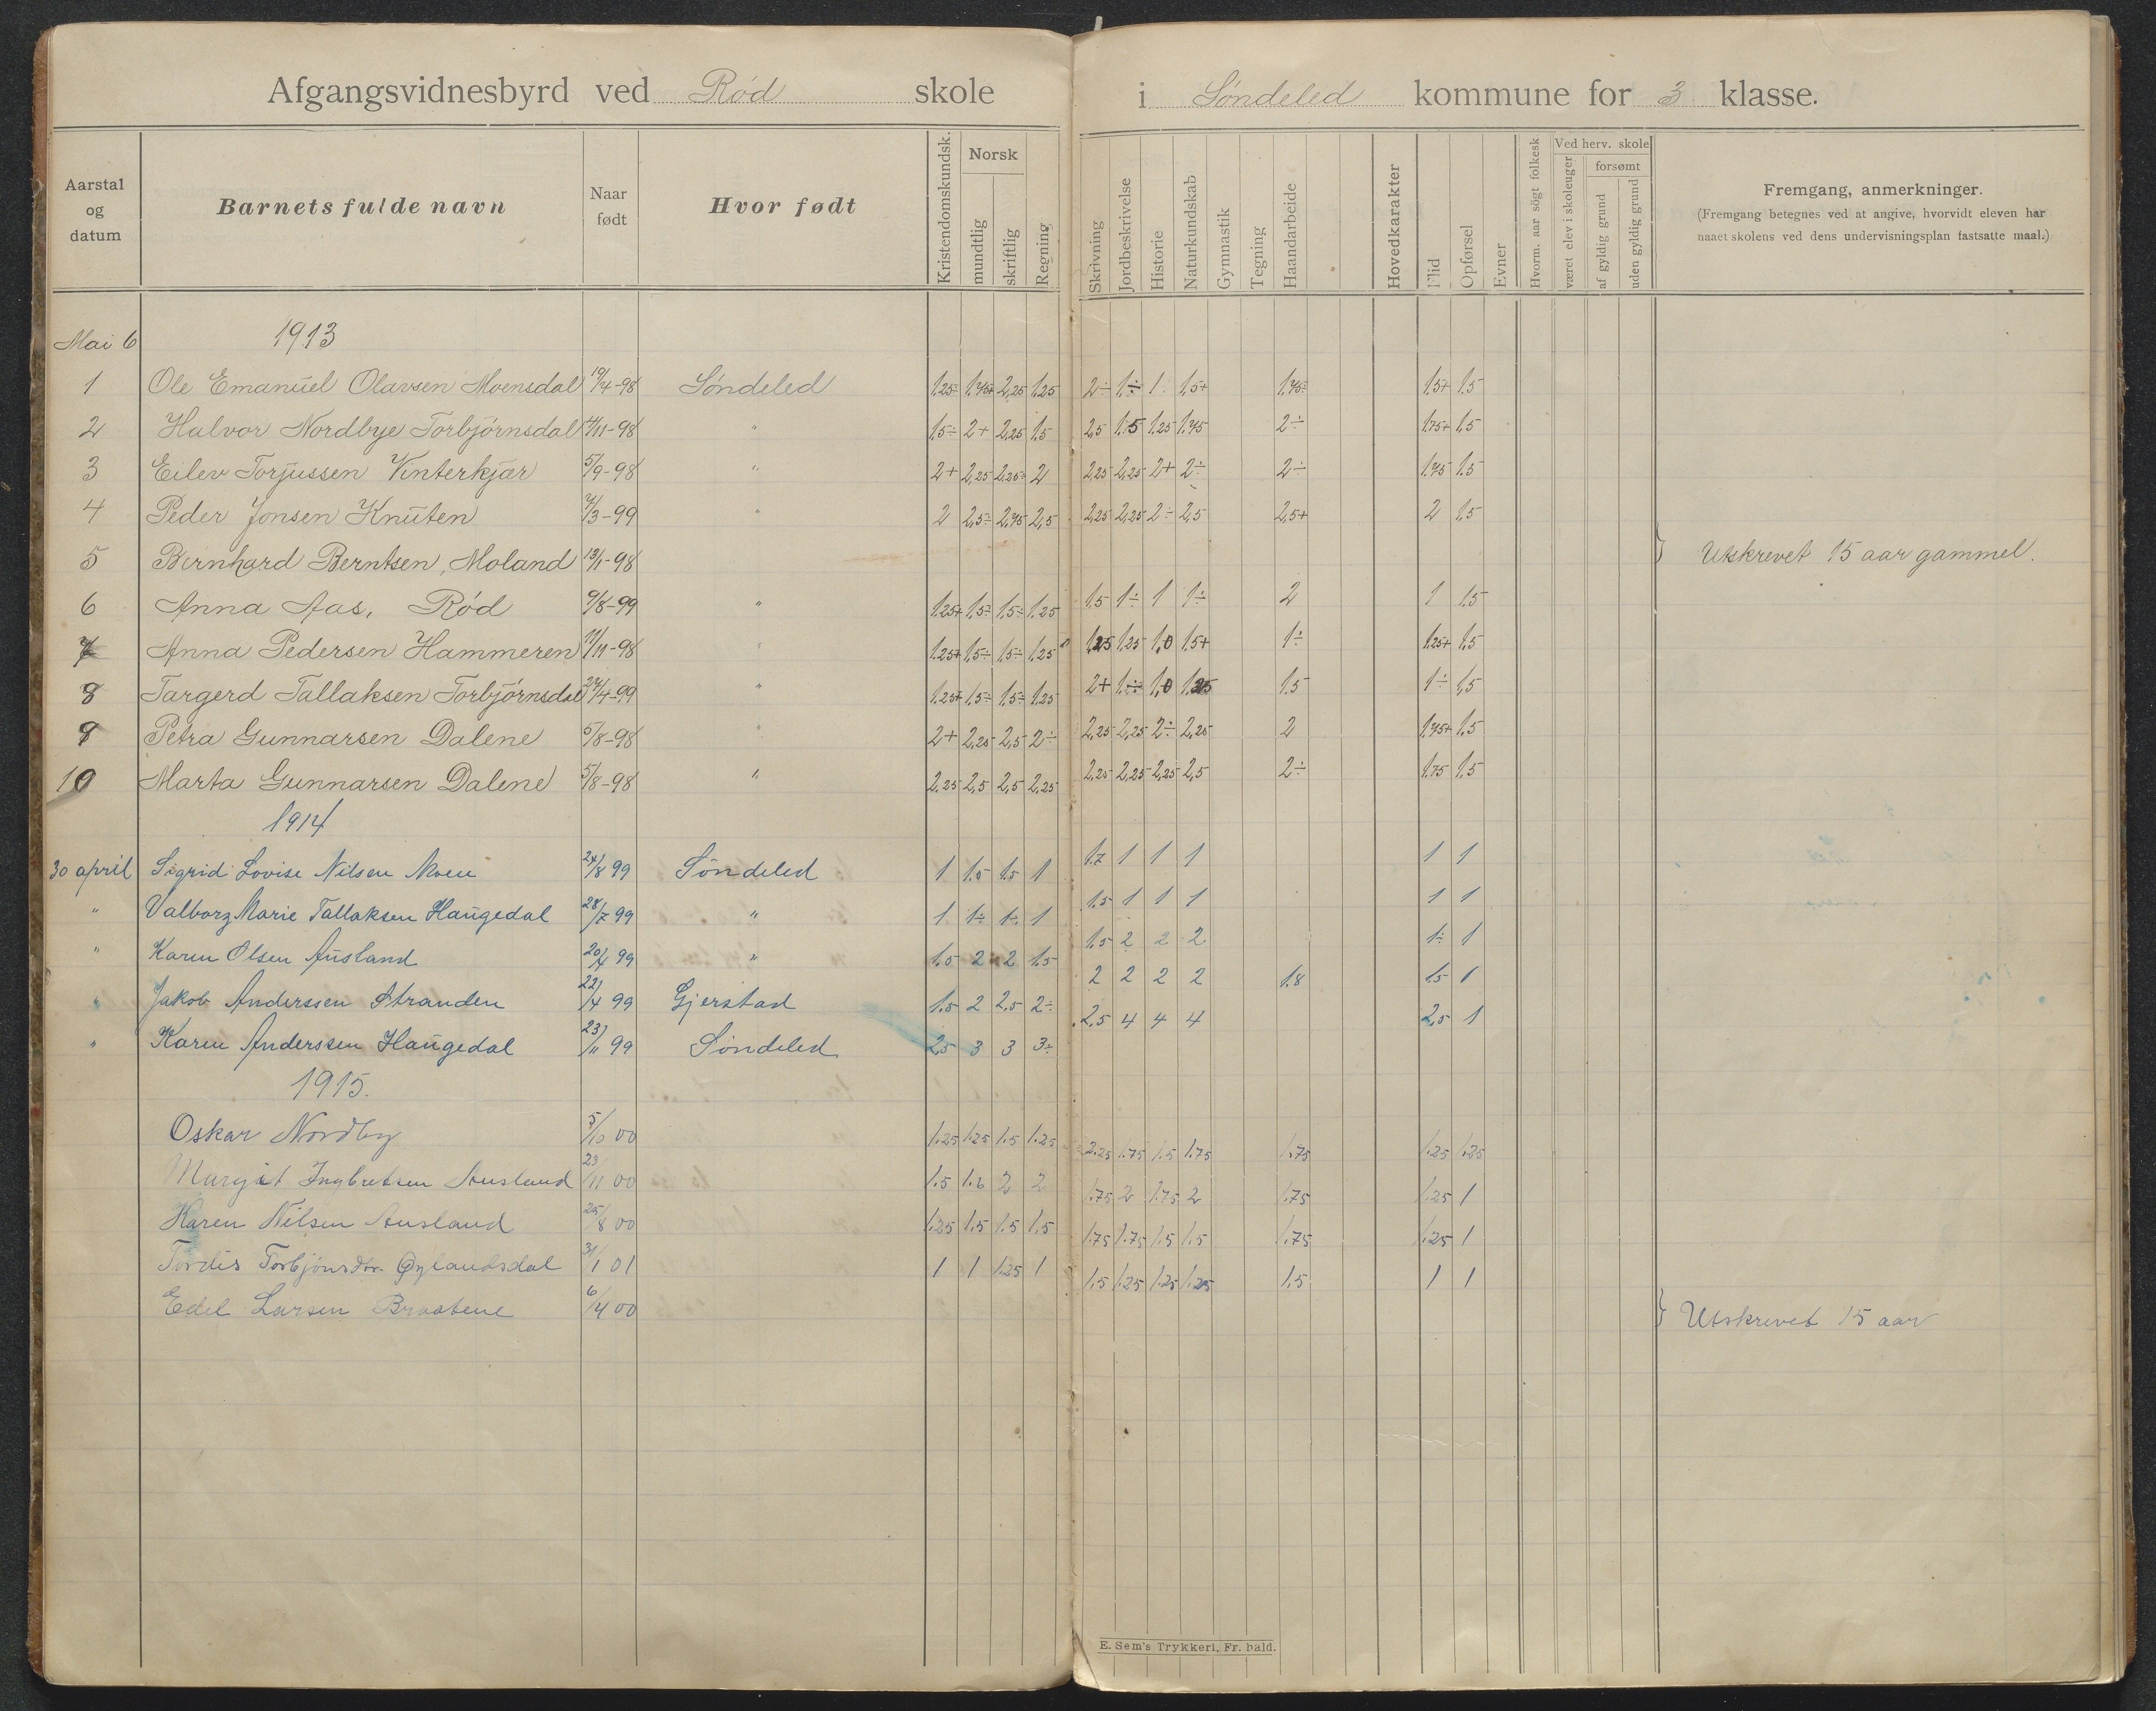 Afgangsvidnesbyrd ved Rød skole i Søndeled kommune for 3 klasse.
Aarstal og datum | Barnets fulde navn | Naar født | Hvor født | Kristendomskundsk. | Norsk mundtlig | skriftlig | Regning | Skrivning | Jordbeskrivelse | Historie | Naturkundskab | Gymnastik | Tegning | Haandarbeide | Hovedkarakter | Flid | Opførsel | Evner | Hvorm. aar søgt folkesk. | Ved herv. skole været elev i skoleuger | forsømt af gyldig grund | uden gyldig grund | Fremgang, anmerkninger.
(Fremgang betegnes ved at angive, hvorvidt eleven har
naaet skolens ved dens undervisningsplan fastsatte maal.)
Mai 6 1913
1 Ole Emanuel Olavsen Moensdal 19/4-98 Søndeled 1.25÷ 1.75+ 2,25 1.25 2÷ 1÷ 1 1,5+ 1,75÷ 1.5+ 1.5
2 Halvor Nordbye Torbjörnsdal 14/11-98 " 1.5÷ 2+ 2,25 1.5 2,5 1.5 1.25 1.75 2÷ 1.75+ 1.5
3 Eilev Torjussen Vinterkjær 5/9-98 " 2+ 2,25 2,25+ 2 2,25 2,25 2+ 2÷ 2÷ 1.75 1.5
4 Peder Jonsen Knuten 7/3-99 " 2 2,5÷ 2,75 2,5 2,25 2,25 2÷ 2,5 2,5+ 2 1.5
5 Bernhard Berntsen, Moland 13/1-98 } Utskrevet 15 aar gammel.
6 Anna Aas, Rød 9/8-99 " 1.25+ 1.5÷ 1.5÷ 1.25 1.5 1÷ 1 1÷ 2 1 1.5
7 Anna Pedersen Hammeren 11/11-98 " 1.25+ 1.5÷ 1.5÷ 1.25 1.25 1.25 1,0 1.5+ 1÷ 1.25+ 1.5
8 Targerd Tallaksen Torbjörnsdal 24/4-99 " 1.25+ 1.5÷ 1.5÷ 1.25 2+ 1÷ 1,0 1.25 1.5 1÷ 1.5
9 Petra Gunnarsen Dalene 5/8-98 " 2+ 2,25 2,5 2÷ 2,25 2,25 2÷ 2,25 2 1,75+ 1.5
10 Marta Gunnarsen Dalene 5/8-98 " 2,25 2,5 2,5 2,25 2,25 2,25 2,25 2,5 2÷ 1.75 1.5
1914
30 april Sigrid Lovise Nilsen Moen 24/8 99 Søndeled 1 1.5 1.5 1 1.7 1 1 1 1 1
" Valborg Marie Tallaksen Haugedal 28/7 99 " 1 1÷ 1÷ 1 1.5 1 1 1 1 1
" Karen Olsen Ausland 20/4 99 " 1.5 2 2 1.5 1.5 2 2 2 1÷ 1
" Jakob Anderssen Stranden 22/4 99 Gjerstad 1.5 2 2,5 2÷ 2 2 2 2 1.8 1.5 1
" Karen Anderssen Haugedal 23/11 99 Søndeled 2,5 3 3 3÷ 2,5 4 4 4 2,5 1
1915.
Oskar Nordby 5/10 00 1.25 1.25 1.5 1.25 2.25 1.75 1.5 1.75 1.75 1.25 1.25
Margit Ingbretsen Ausland 23/11 00 1.5 1.6 2 2 1.75 2 1.75 2 1.75 1.25 1
Karen Nilsen Ausland 25/8 00 1.25 1.5 1.5 1.5 1.75 1.75 1.5 1.5 1.75 1.25 1
Tordis Torbjønsdtr. Øylandsdal 31/1 01 1 1 1.25 1 1.5 1.25 1.25 1.25 1.5 1 1
Edel Larsen Braatene 6/4 00 } Utskrevet 15 aar
E. Sem's Trykkeri, Fr. hald.